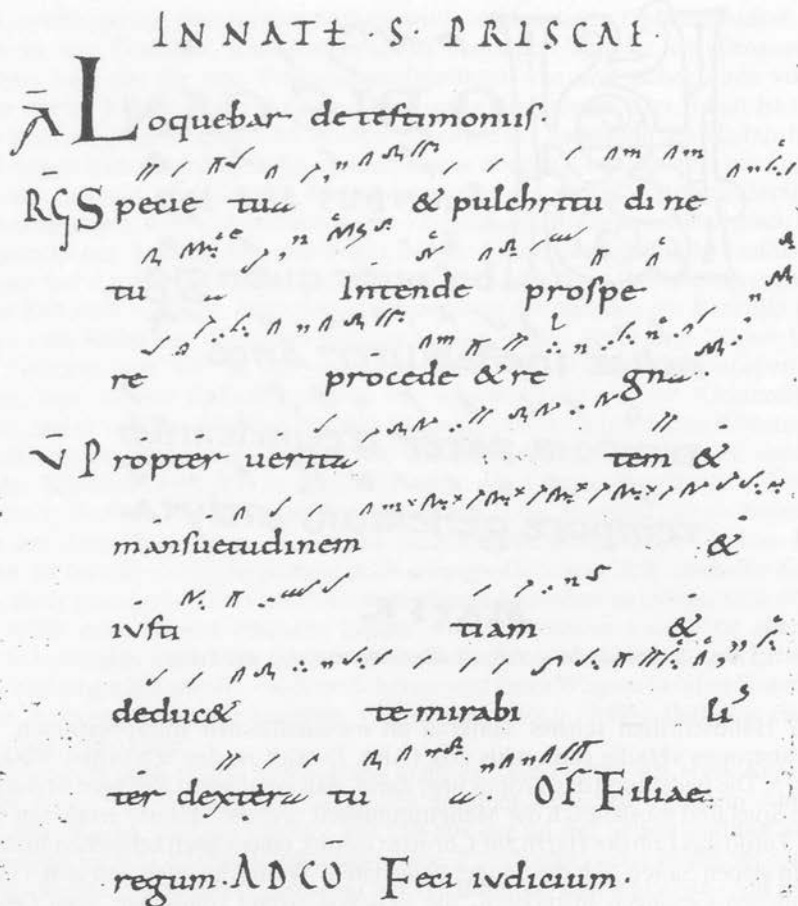 IN NAT̄ · S · PRISCAE ·
Ā Loquebar de testimoniis.
RḠ Specie tua & pulchritudine
tu a Intende prospe
re procede & re gna
V̄ Propter verita tem &
mansuetudinem &
iusti tiam &
deduc& te mirabi li
ter dextera tu a OF̄ Filiae
regum. AD CO Feci iudicium.